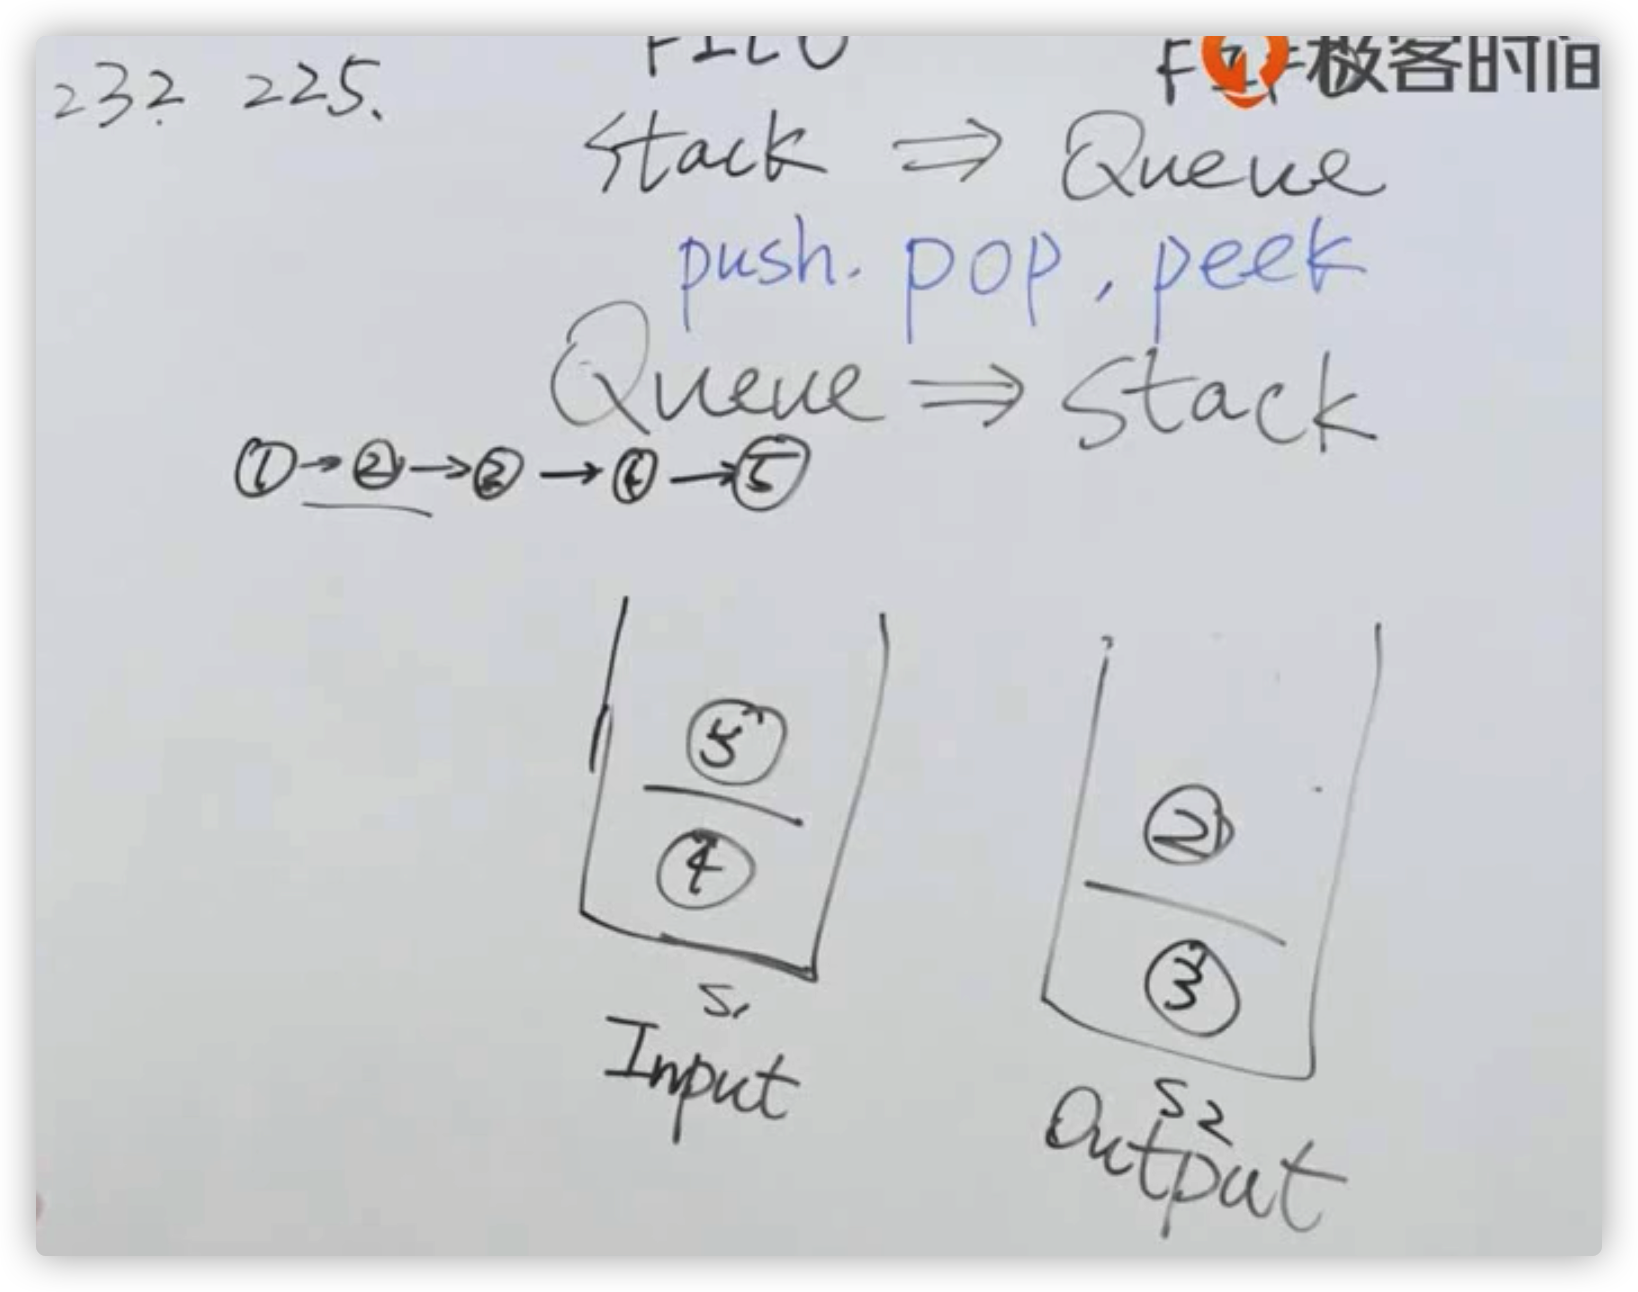 232. 225.
FILO
极客时间
Stack ⇒ Queue
push. pop, peek
Queue ⇒ Stack
① → ② → → ④ → ⑤
5
4
2
3
S1
Input
S2
Output